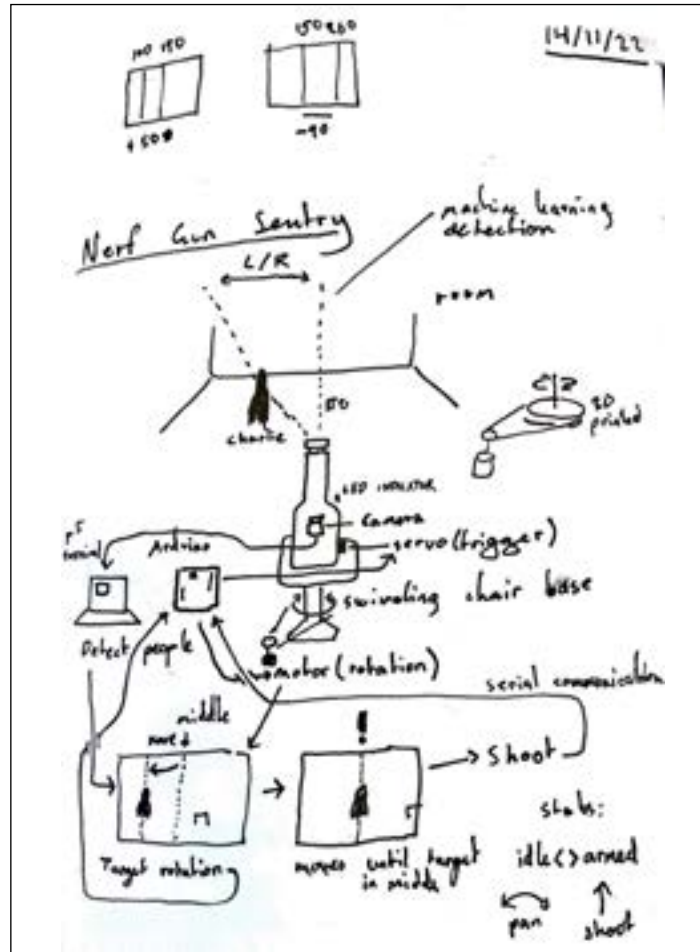 14/11/22
100 150
150 260
+50
-90
Nerf Gun Sentry
machine learning
detection
L/R
room
charlie
3D
printed
LED INDICATOR
camera
Arduino
servo (trigger)
swiveling chair base
Detect people
motor (rotation)
serial communication
middle
move
Shoot
Target rotation
moves until target
in middle
states:
idle <> armed
pan
shoot